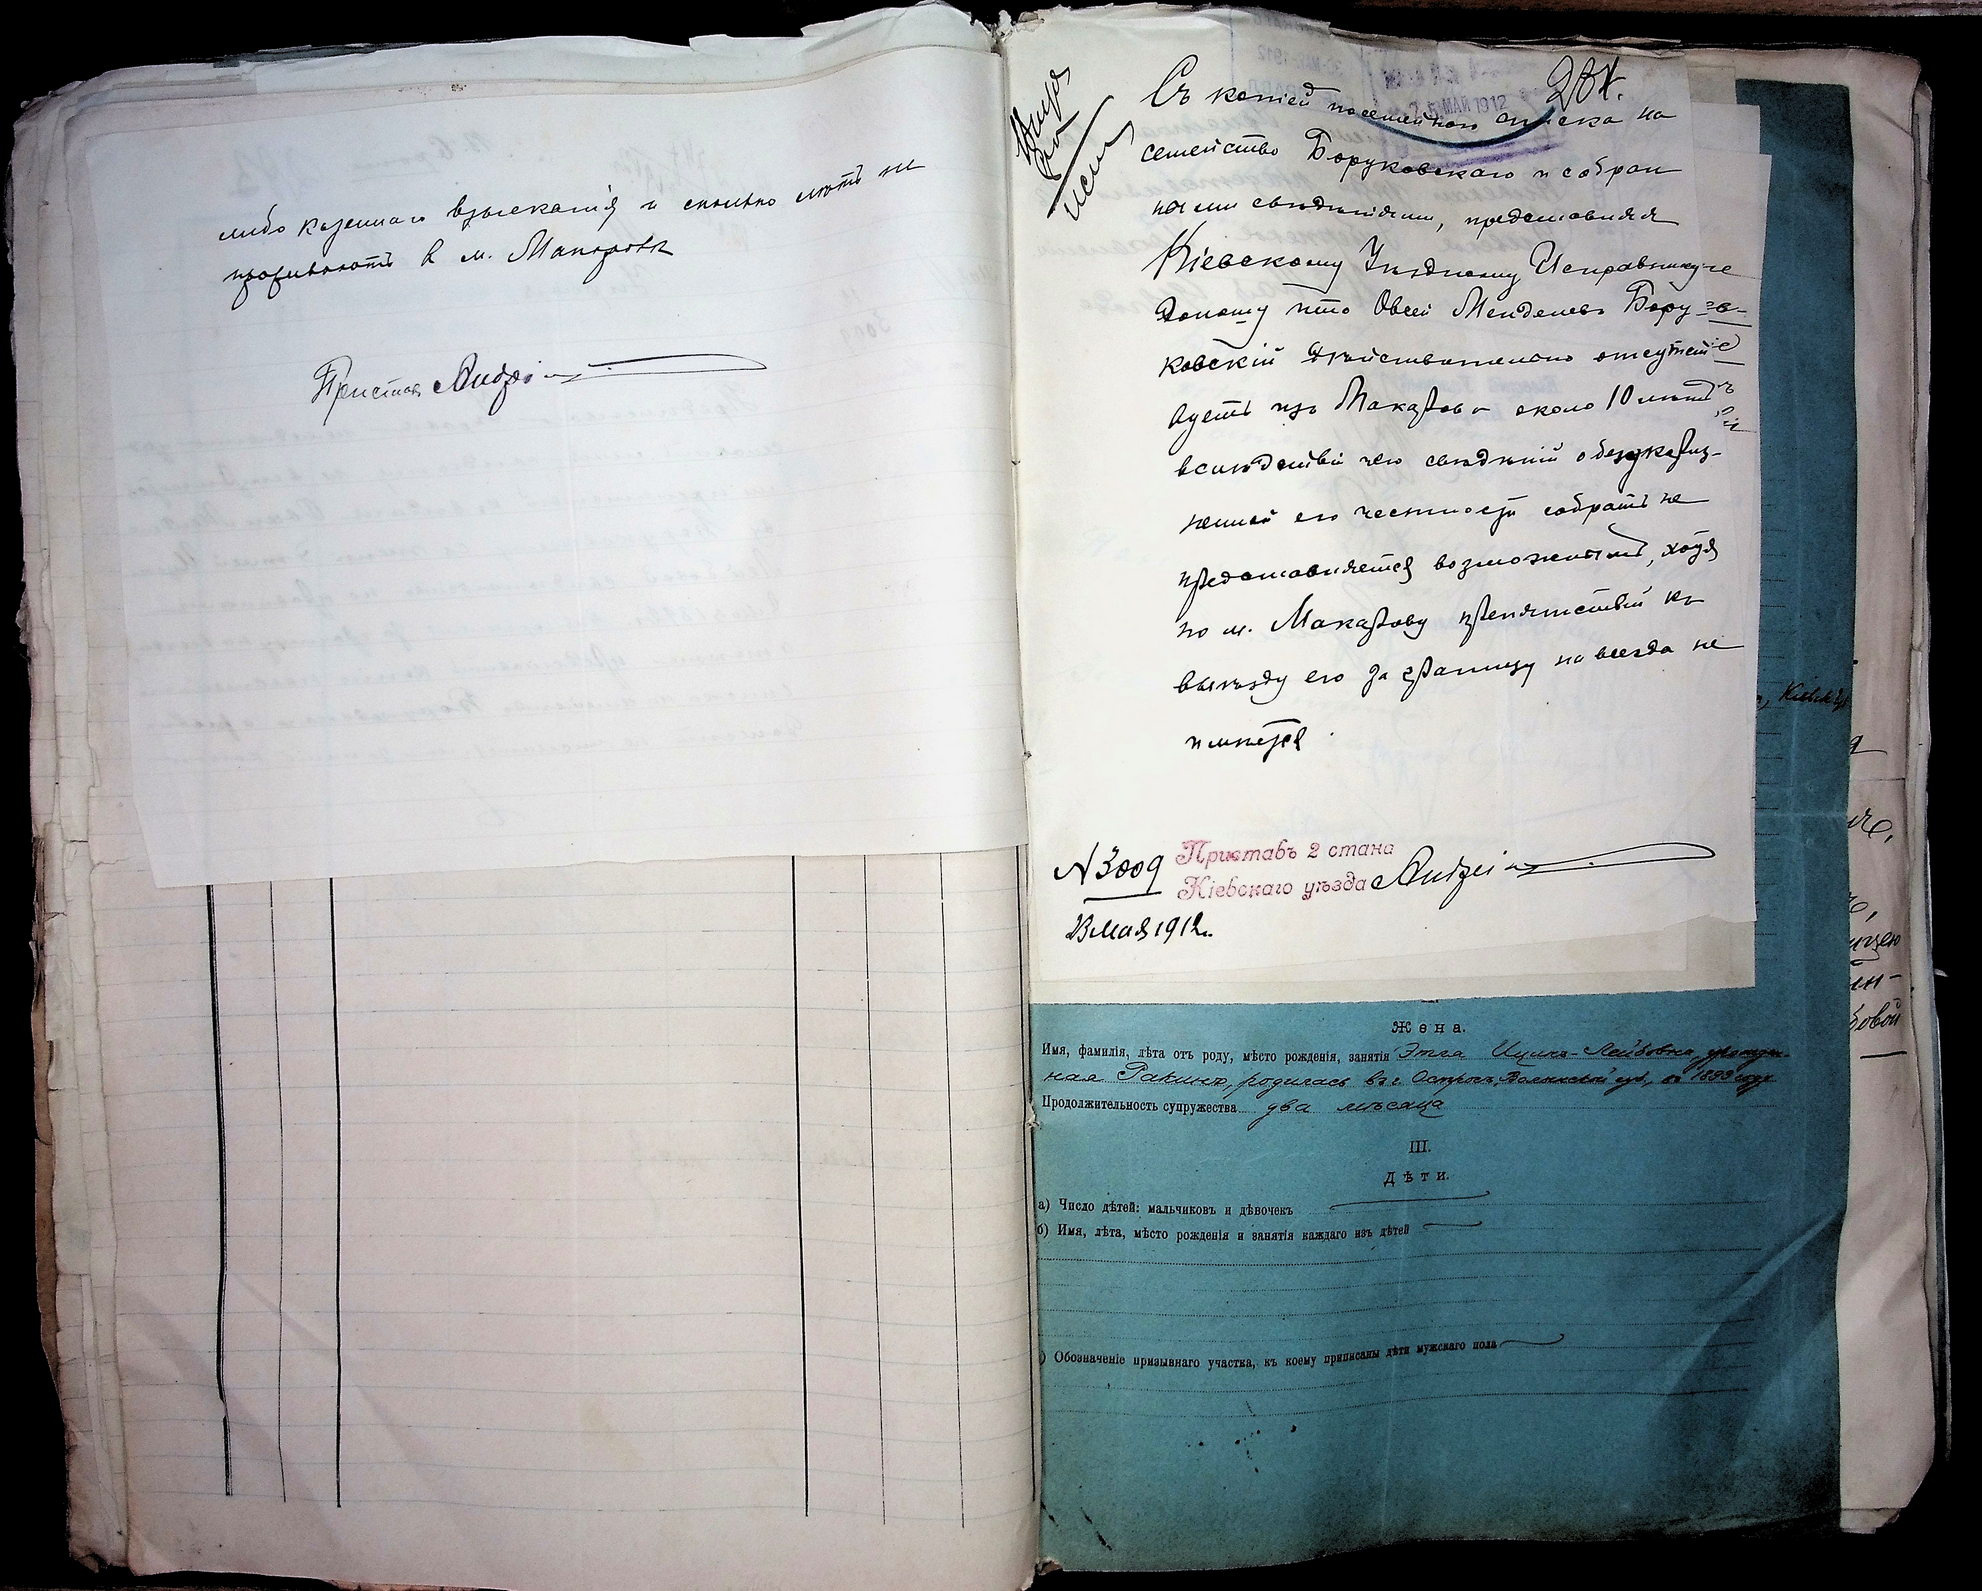 либо казеннаго взысканія и сколько лѣтъ не
проживаютъ в м. Макаровѣ
Приставъ
234.
25 МАЙ 1912
Съ копіей посемейнаго списка на
семейство Боруковскаго и собран
ными свѣдѣніями, представляя
Кіевскому Уѣздному Исправнику
доношу что Овсей Менделевъ Бору-
ковскій дѣйствительно отсутст
вуетъ изъ Макарова около 10 лѣтъ
вслѣдствіи чего свѣдѣній о безукориз-
ненной его честности собрать не
представляется возможнымъ, хотя
по м. Макарову препятствій къ
выѣзду его за границу навсегда не
имѣется.
N 3009
Приставъ 2 стана
Кіевскаго уѣзда
23 мая 1912 г.
Жена.
Имя, фамилія, лѣта отъ роду, мѣсто рожденія, занятія Этга Ицико-Лейбовна, урожден-
ная Ракинъ, родилась въ г. Острогѣ, Волынской губ., въ году
Продолжительность супружества два мѣсяца
III.
Дѣти.
а) Число дѣтей: мальчиковъ и дѣвочекъ
б) Имя, лѣта, мѣсто рожденія и занятія каждаго изъ дѣтей
) Обозначеніе призывнаго участка, къ коему приписаны дѣти мужскаго пола